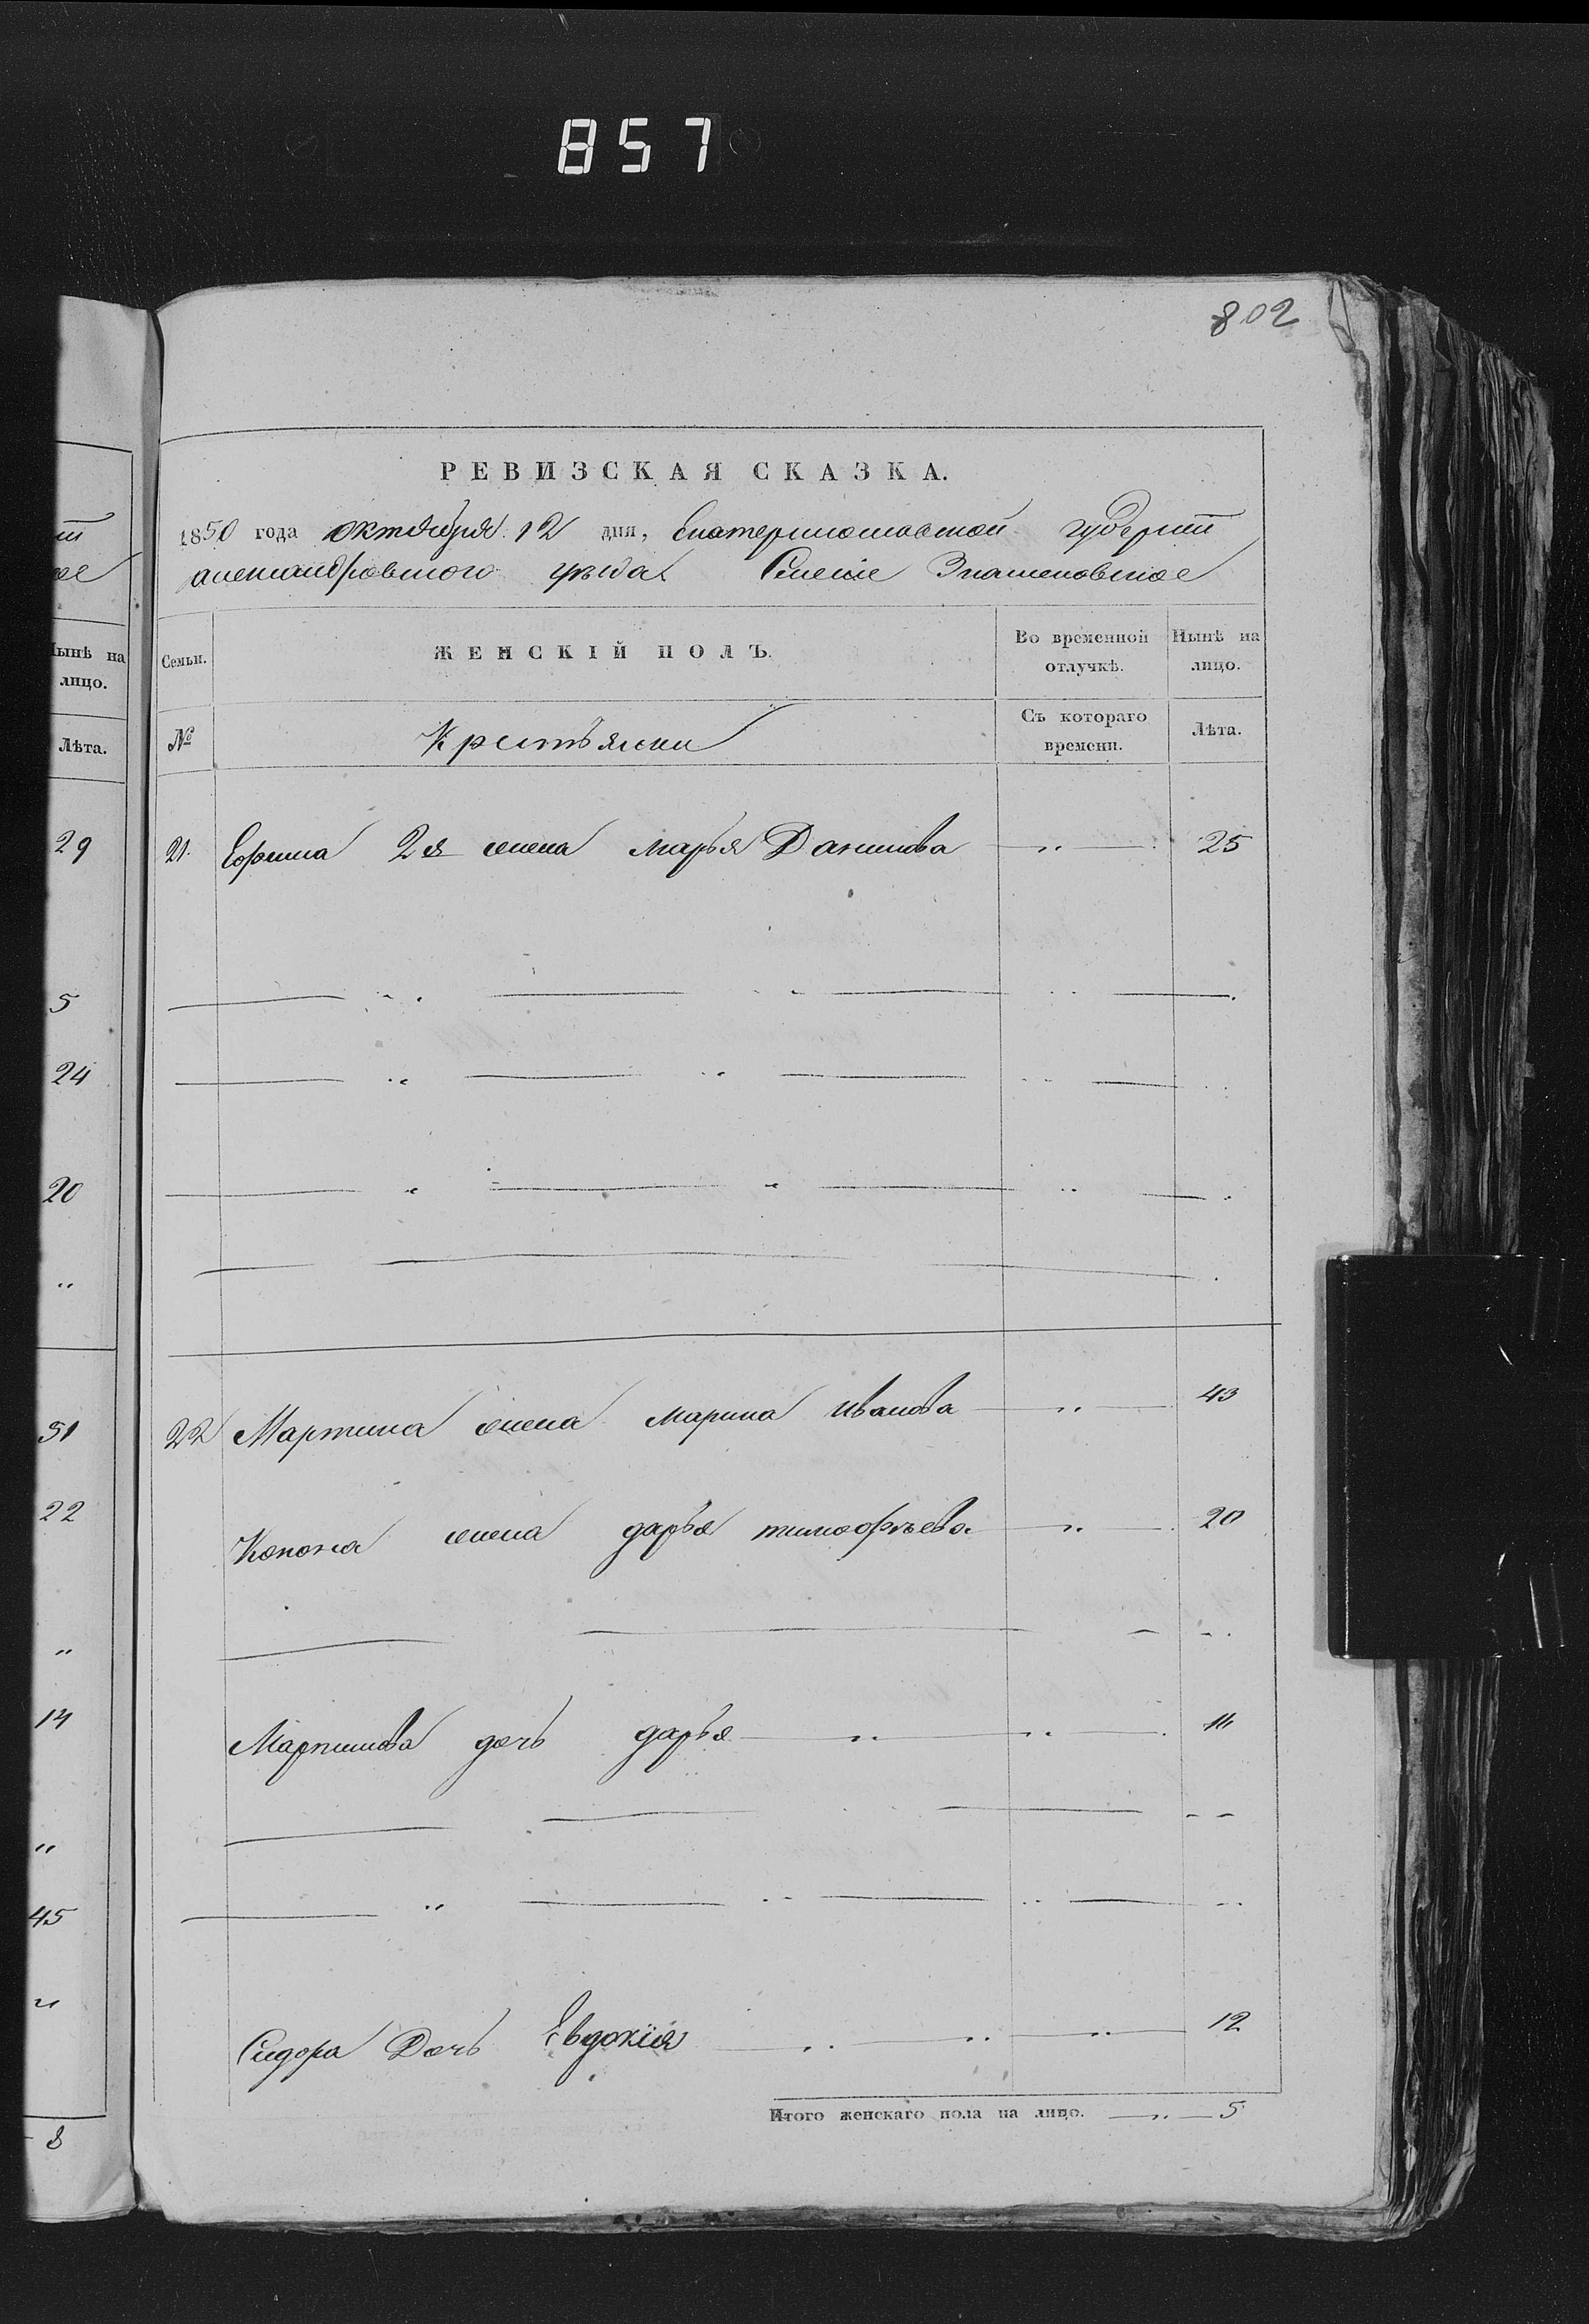 857
802
РЕВИЗСКАЯ СКАЗКА.
1850 года октября 12 дня, Екатеринославской губернии
александровского уѣзда Селеніе Знаменовское
Семьи. ЖЕНСКІЙ ПОЛЪ. Во временной отлучкѣ. Нынѣ на лицо.
№ Крестьянки Съ котораго времени. Лѣта.
21. Ефима 2я жена марья Данилова 25
22 Мартина жена марина иванова 43
Конона жена дарья тимофѣева 20
Мартинова дочь дарья 11
Сидора Дочь Евдокія 12
Итого женскаго пола на лицо. 5
Нынѣ на
лицо.
Лѣта.
29
5
24
20
51
22
14
45
8